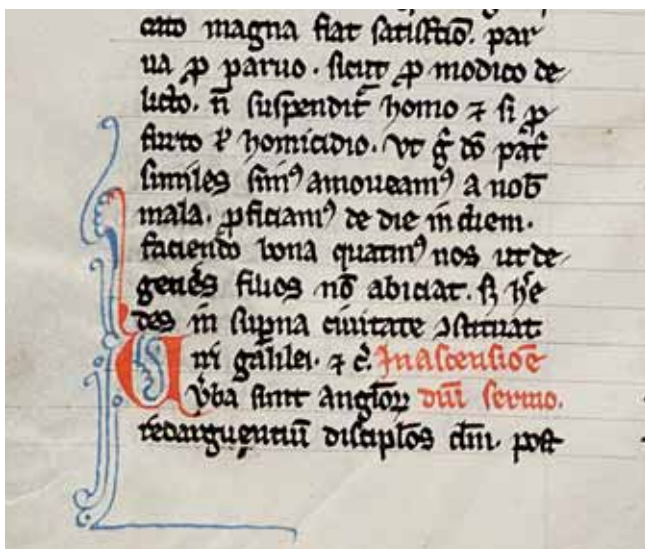 cato magna fiat satisfctiō. par
ua ꝓ paruo. sicut ꝓ modico de
licto. n̄ suspendit᷑ homo ⁊ si ꝓ
furto ł homicidio. vt g̊ dō pat̃
similes simꝰ amoueamꝰ a nob̄
mala. ꝓficiamꝰ de die in diem.
faciendo bona quatinꝰ nos ut de
gen̄es filios nō abiciat. s̄ h̄e
des in sup̄na ciuitate ꝯstituat.
Uiri galilei. ⁊ c̄. In ascensiōe
v̄ba sunt angloꝝ dn̄i sermo.
redarguentiū discip̄los dn̄i. post